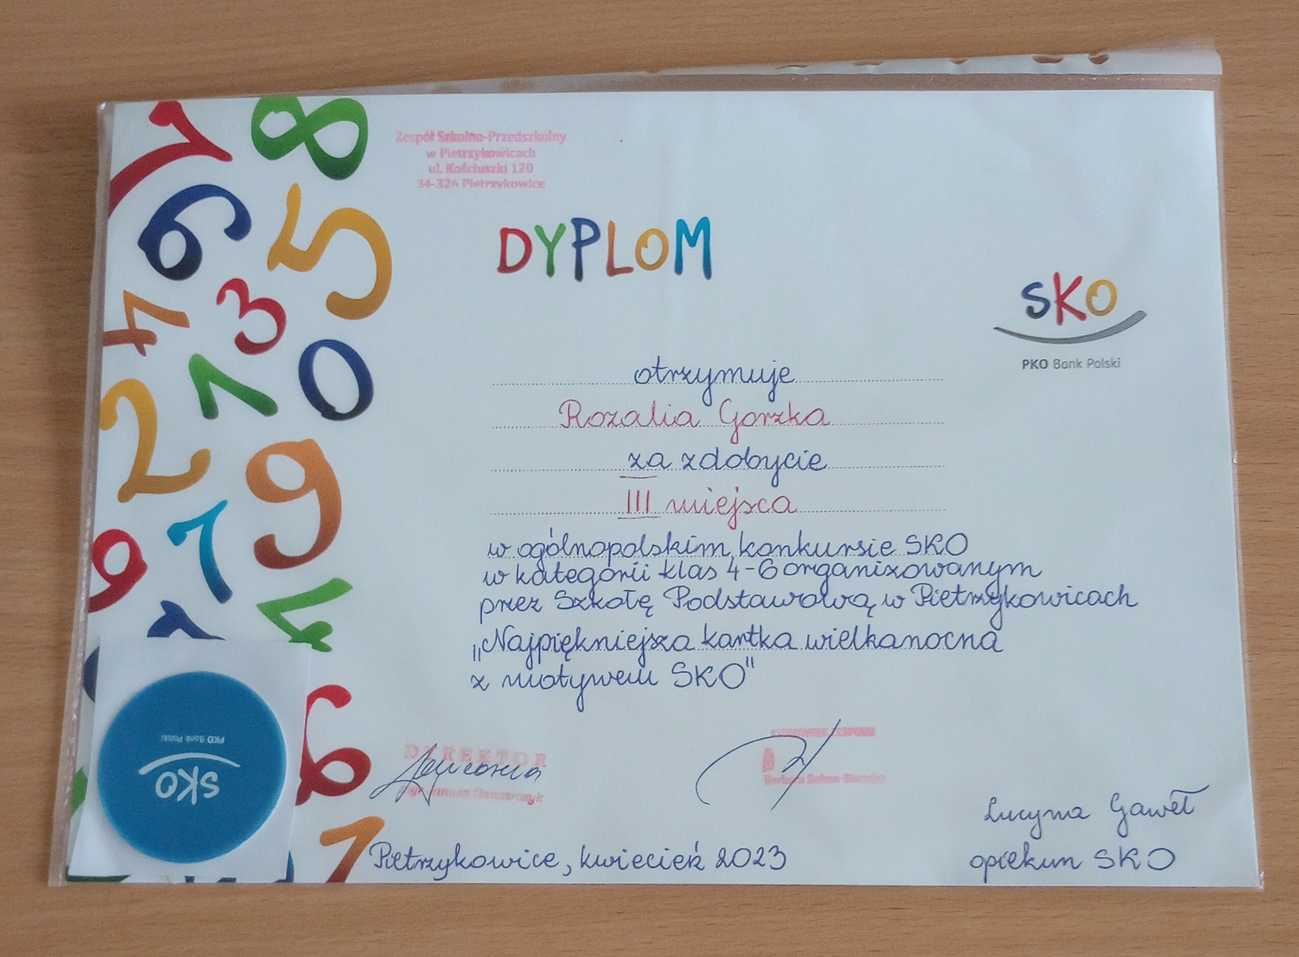 Zespół Szkolno-Przedszkolny
w Pietrzykowicach
ul. Kościuszki 120
34-326 Pietrzykowice
DYPLOM
SKO
PKO Bank Polski
otrzymuje
Rozalia Gorzka
za zdobycie
III miejsca
w ogólnopolskim konkursie SKO
w kategorii klas 4-6 organizowanym
przez Szkołę Podstawową w Pietrzykowicach
„Najpiękniejsza kartka wielkanocna
z motywem SKO"
DYREKTOR
Lucyna Gaweł
opiekun SKO
Pietrzykowice, kwiecień 2023
SKO
PKO Bank Polski